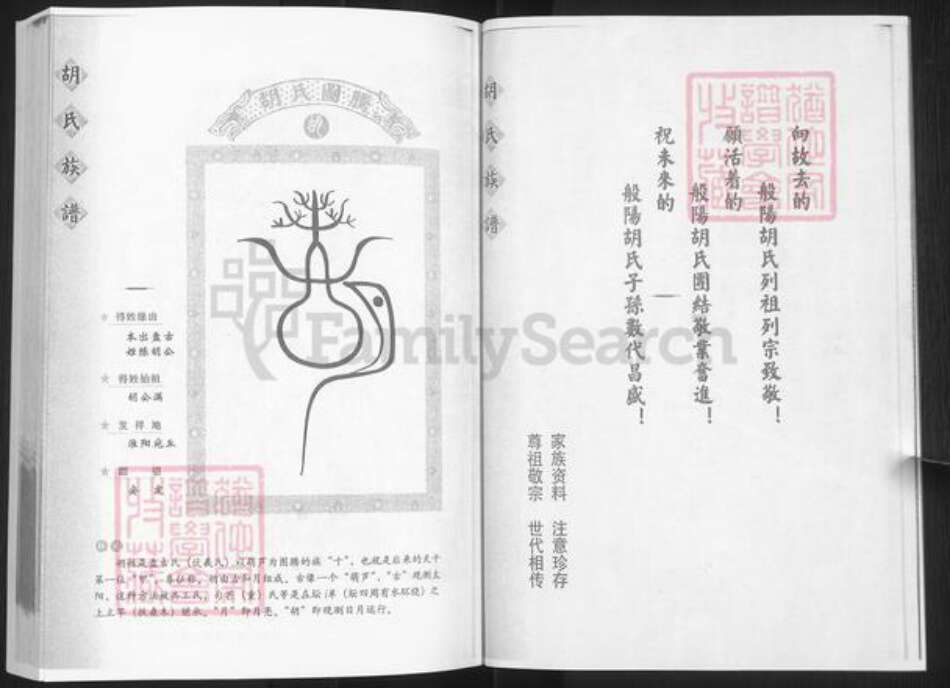 胡氏族譜
胡氏圖騰
得姓缘由
本出盘古
姓陈胡公
得姓始祖
胡公满
发得地
淮阳宛丘
胡族是盘古氏（伏羲氏）以葫芦为图腾的族“十”，也就是后来的天干
第一位“甲”，尊位称，胡由古和月组成，古像一个“葫芦”，“古”观测太
阳，这种方法被共工氏，
（重）氏等是在坛
（坛四周有水环绕）之
上立竿（扶桑木）
，“月”即月亮，“胡”即观测日月运行。
FamilySearch
胡氏族谱
向故去的
般陽胡氏列祖列宗致敬！
願活着的
般陽胡氏團結敬業奮進！
祝未來的
般陽胡氏子孫數代昌盛！
家族资料 注意珍存
尊祖敬宗 世代相传